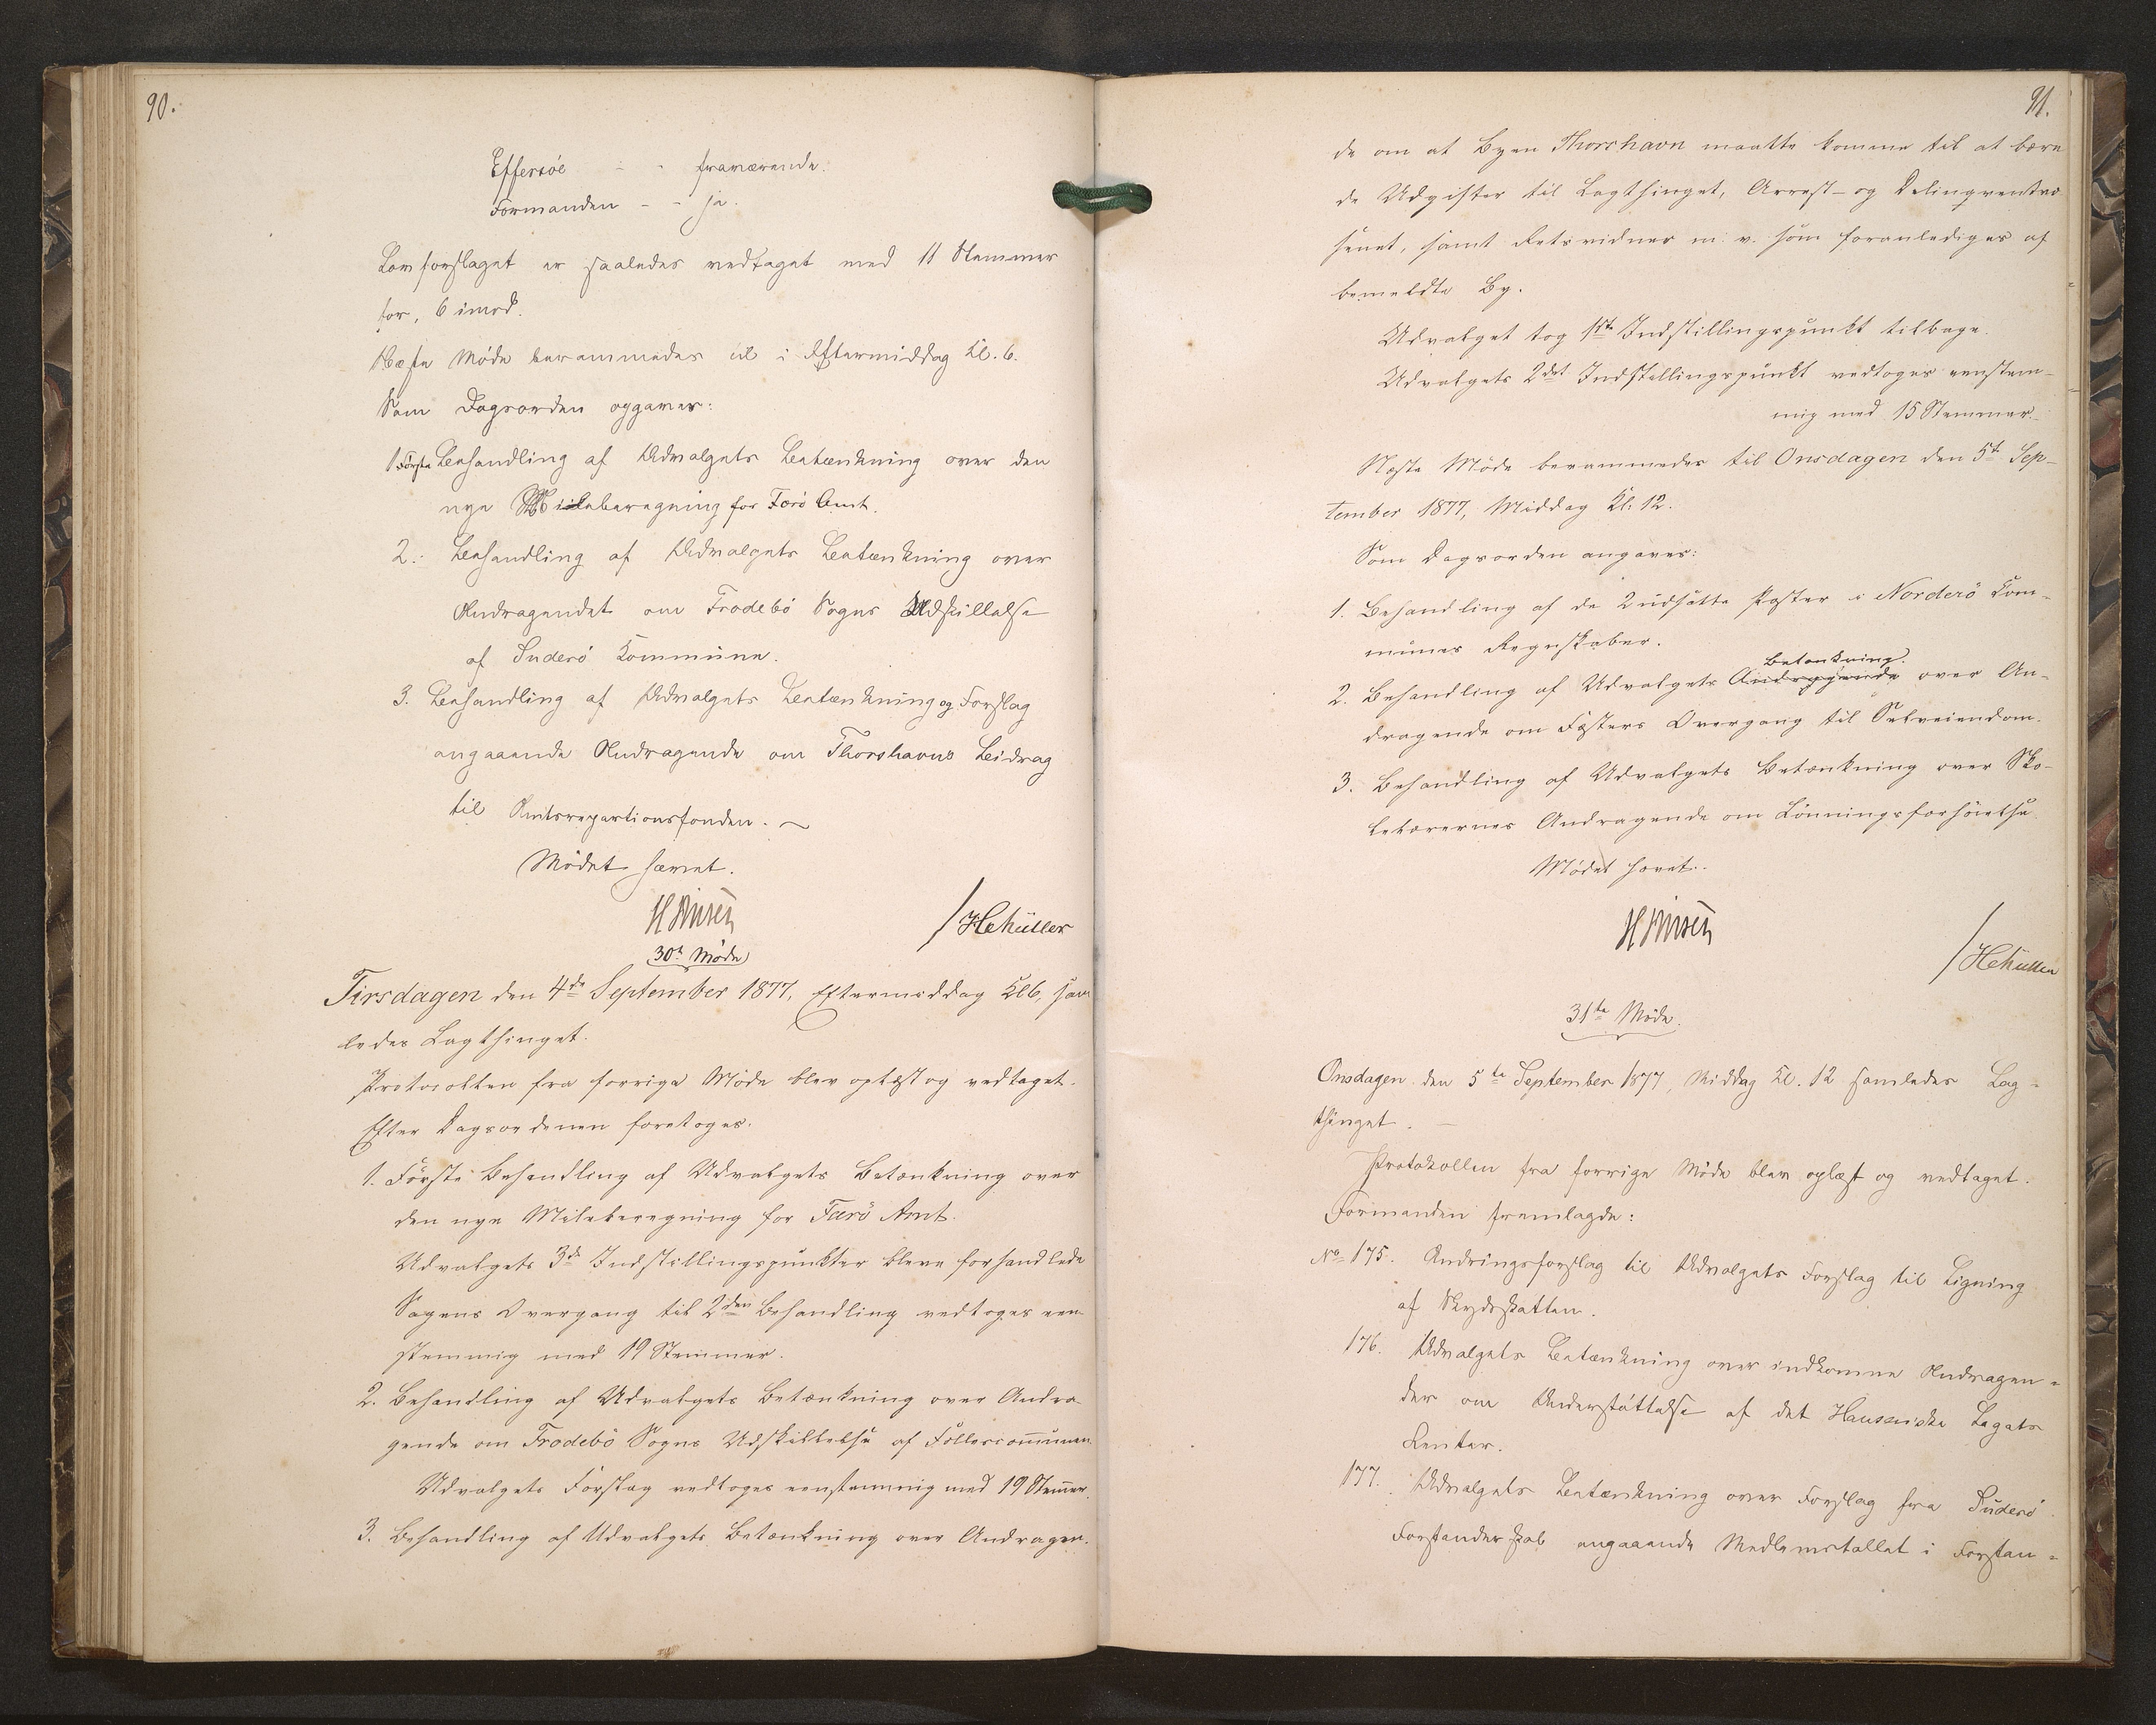 90.
Effersöe - - fraværende.
Formanden - - ja.
Lovforslaget er saaledes vedtaget med 11 Stemmer
for, 6 imod.
Næste Møde berammedes til i Eftermiddag Kl. 6.
Som Dagsorden opgaves:
1. Første Behandling af Udvalgets Betænkning over den
nye Mileberegning for Færö Amt.
2. Behandling af Udvalgets Betænkning over
Andragendet om Frodebö Sogns Udskillelse
af Suderö Kommune.
3. Behandling af Udvalgets Betænkning og Forslag
angaaende Andragende om Thorshavns Bidrag
til Amtsrepartionsfonden.
Mødet hævet.
H Finsen
/HCMüller
30te Møde
Tirsdagen den 4de September 1877, Eftermiddag Kl 6, sam
ledes Lagthinget.
Protocollen fra forrige Møde blev oplæst og vedtaget.
Efter Dagsordenen foretoges.
1. Første Behandling af Udvalgets Betænkning over
den nye Mileberegning for Færö Amt.
Udvalgets 3de Indstillingspunkter bleve forhandlede
Sagens Overgang til 2den Behandling vedtoges een
stemmig med 19 Stemmer.
2. Behandling af Udvalgets Betænkning over Andra-
gende om Frodebö Sogns Udskillelse af Fællescommunen.
Udvalgets Forslag vedtoges eenstemmig med 19 Stemmer.
3. Behandling af Udvalgets Betænkning over Andragen-
91.
de om at Byen Thorshavn maatte komme til at bære
de Udgifter til Lagthinget, Arrest- og Delinqventvæ
senet, samt Retsvidner m. v. som foranlediges af
bemeldte By.
Udvalget tog 1ste Indstillingspunkt tilbage.
Udvalgets 2det Indstillingspunkt vedtoges eenstem-
mig med 15 Stemmer.
Næste Møde berammedes til Onsdagen den 5te Sep-
tember 1877, Middag Kl. 12.
Som Dagsorden angaves:
1. Behandling af de 2 udsatte Poster i Norderö Kom-
munes Regnskaber.
Betænkning
2. Behandling af Udvalgets Andragende over An-
dragende om Fæsters Overgang til Selveiendom.
3. Behandling af Udvalgets Betænkning over Sko-
lelærernes Andragende om Lønningsforhøielse.
Mødet hævet.
H Finsen
/HCMüller
31te Møde.
Onsdagen den 5te September 1877, Middag Kl. 12 samledes Lag-
thinget.
Protokollen fra forrige Møde blev oplæst og vedtaget.
Formanden fremlagde:
No 175. Ændringsforslag til Udvalgets Forslag til Ligning
af Skydsskatten.
176. Udvalgets Betænkning over indkomne Andragen-
der om Understøttelse af det Hansenske Legats
Renter.
177. Udvalgets Betænkning over Forslag fra Suderö
Forstanderskab angaaende Medlemstallet i Forstan-